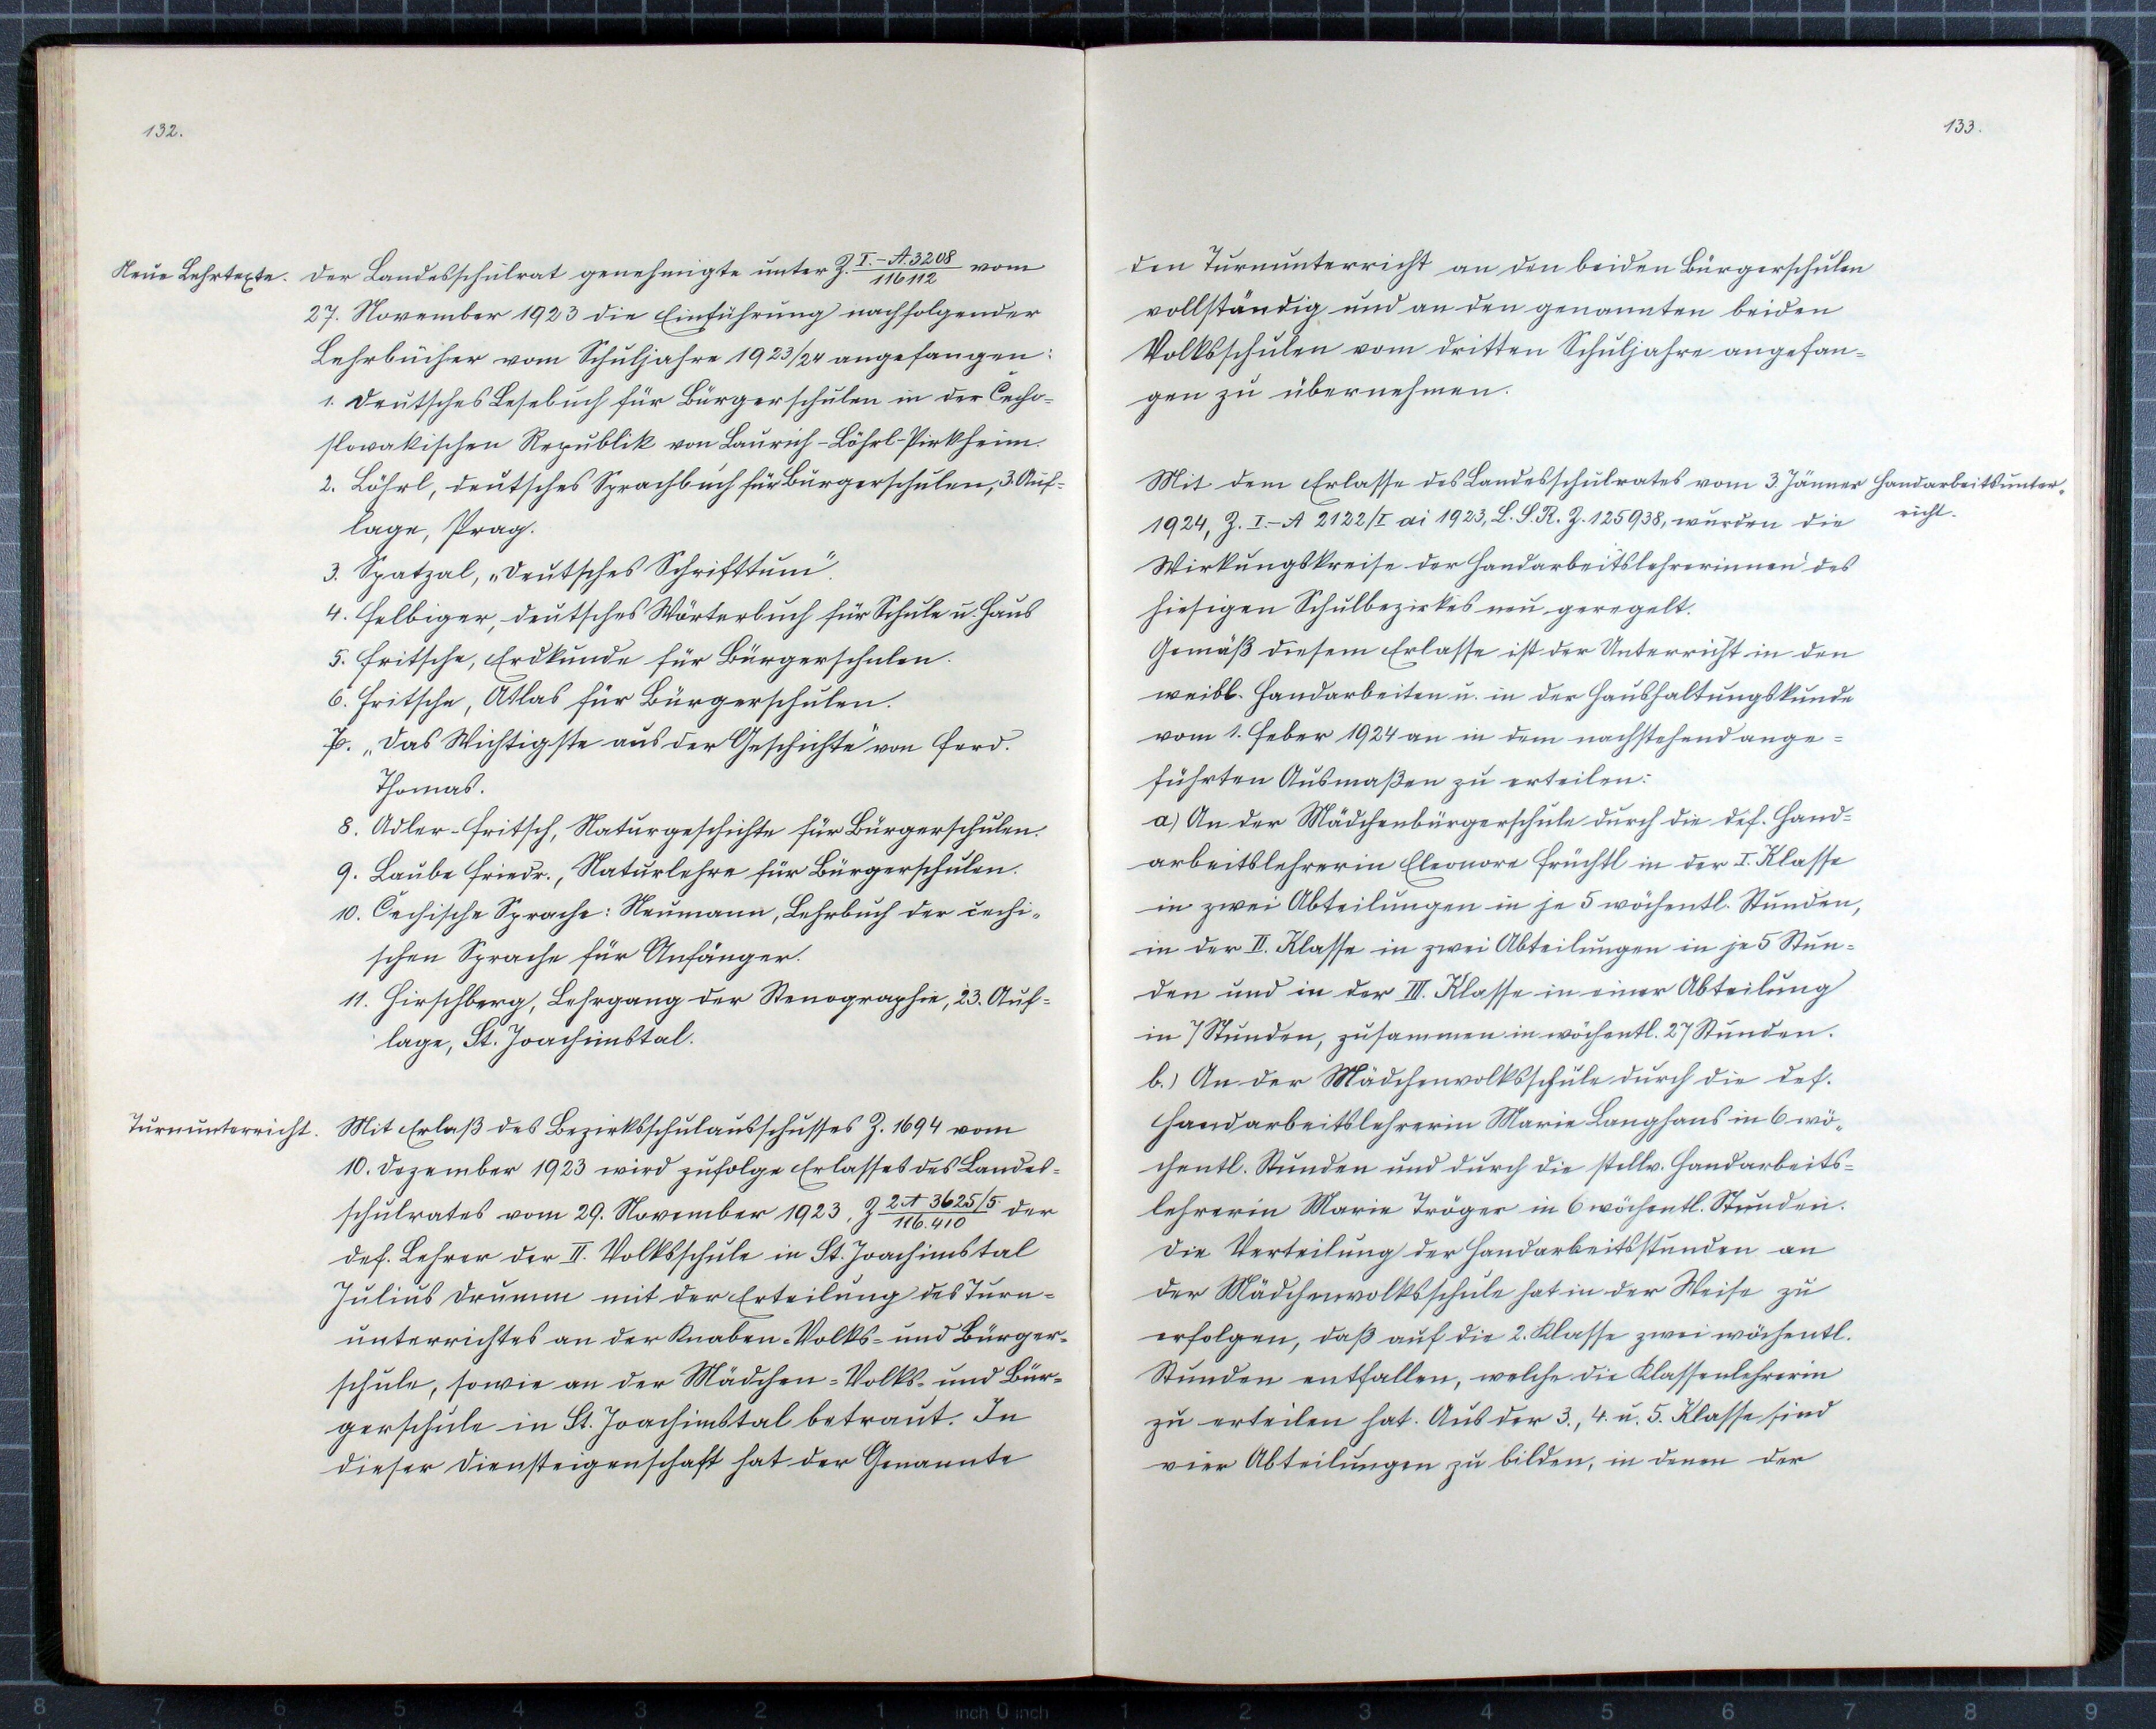 132.
Neue Lehrtexte.
Der Landesschulrat genehmigte unter Z. I.-A.3208/116112 vom
27. November 1923 die Einführung nachfolgender
Lehrbücher vom Schuljahre 1923/24 angefangen:
1. Deutsches Lesebuch für Bürgerschulen in der Čecho-
slovakischen Republik von Laurich-Löhrl-Pirkheim.
2. Löhrl, deutsches Sprachbuch für Bürgerschulen, 3. Auf-
lage, Prag.
3. Spatzal, „Deutsches Schrifttum“.
4. Felbiger, deutsches Wörterbuch für Schule u. Haus
5. Fritsche, Erdkunde für Bürgerschulen.
6. Fritsche, Atlas für Bürgerschulen.
7. „Das Wichtigste aus der Geschichte“ von Ferd.
Thomas.
8. Adler-Fritsch, Naturgeschichte für Bürgerschulen.
9. Laube Friedr., Naturlehre für Bürgerschulen.
10. Čechische Sprache: Neumann, Lehrbuch der čechi-
schen Sprache für Anfänger.
11. Hirschberg, Lehrgang der Stenographie, 23. Auf-
lage, St. Joachimstal.
Turnunterricht.
Mit Erlaß des Bezirksschulausschusses Z. 1694 vom
10. Dezember 1923 wird zufolge Erlasses des Landes-
schulrates vom 29. November 1923, Z 2A 3625/5/116.410 der
def. Lehrer der II. Volksschule in St. Joachimstal
Julius Drumm mit der Erteilung des Turn-
unterrichtes an der Knaben-Volks- und Bürger-
schule, sowie an der Mädchen-Volks- und Bür-
gerschule in St. Joachimstal betraut. In
dieser Diensteigenschaft hat der Genannte
133.
den Turnunterricht an den beiden Bürgerschulen
vollständig und an den genannten beiden
Volksschulen vom dritten Schuljahre angefan-
gen zu übernehmen.
Handarbeitsunter-
richt.
Mit dem Erlasse des Landesschulrates vom 3. Jänner
1924, Z. I.-A 2122/I ai 1923, L.S.R. Z. 125938, wurden die
Wirkungskreise der Handarbeitslehrerinnen des
hiesigen Schulbezirkes neu geregelt.
Gemäß diesem Erlasse ist der Unterricht in den
weibl. Handarbeiten u. in der Haushaltungskunde
vom 1. Feber 1924 an in dem nachstehend ange-
führten Ausmaßen zu erteilen:
a) An der Mädchenbürgerschule durch die def. Hand-
arbeitslehrerin Eleonore Früchtl in der I. Klasse
in zwei Abteilungen in je 5 wöchentl. Stunden,
in der II. Klasse in zwei Abteilungen in je 5 Stun-
den und in der III. Klasse in einer Abteilung
in 7 Stunden, zusammen in wöchentl. 27 Stunden.
b.) An der Mädchenvolksschule durch die def.
Handarbeitslehrerin Marie Langhans in 6 wö-
chentl. Stunden und durch die stellv. Handarbeits-
lehrerin Marie Tröger in 6 wöchentl. Stunden.
Die Verteilung der Handarbeitsstunden an
der Mädchenvolksschule hat in der Weise zu
erfolgen, daß auf die 2. Klasse zwei wöchentl.
Stunden entfallen, welche die Klassenlehrerin
zu erteilen hat. Aus der 3., 4. u. 5. Klasse sind
vier Abteilungen zu bilden, in denen der
8 7 6 5 4 3 2 1 inch 0 inch 1 2 3 4 5 6 7 8 9